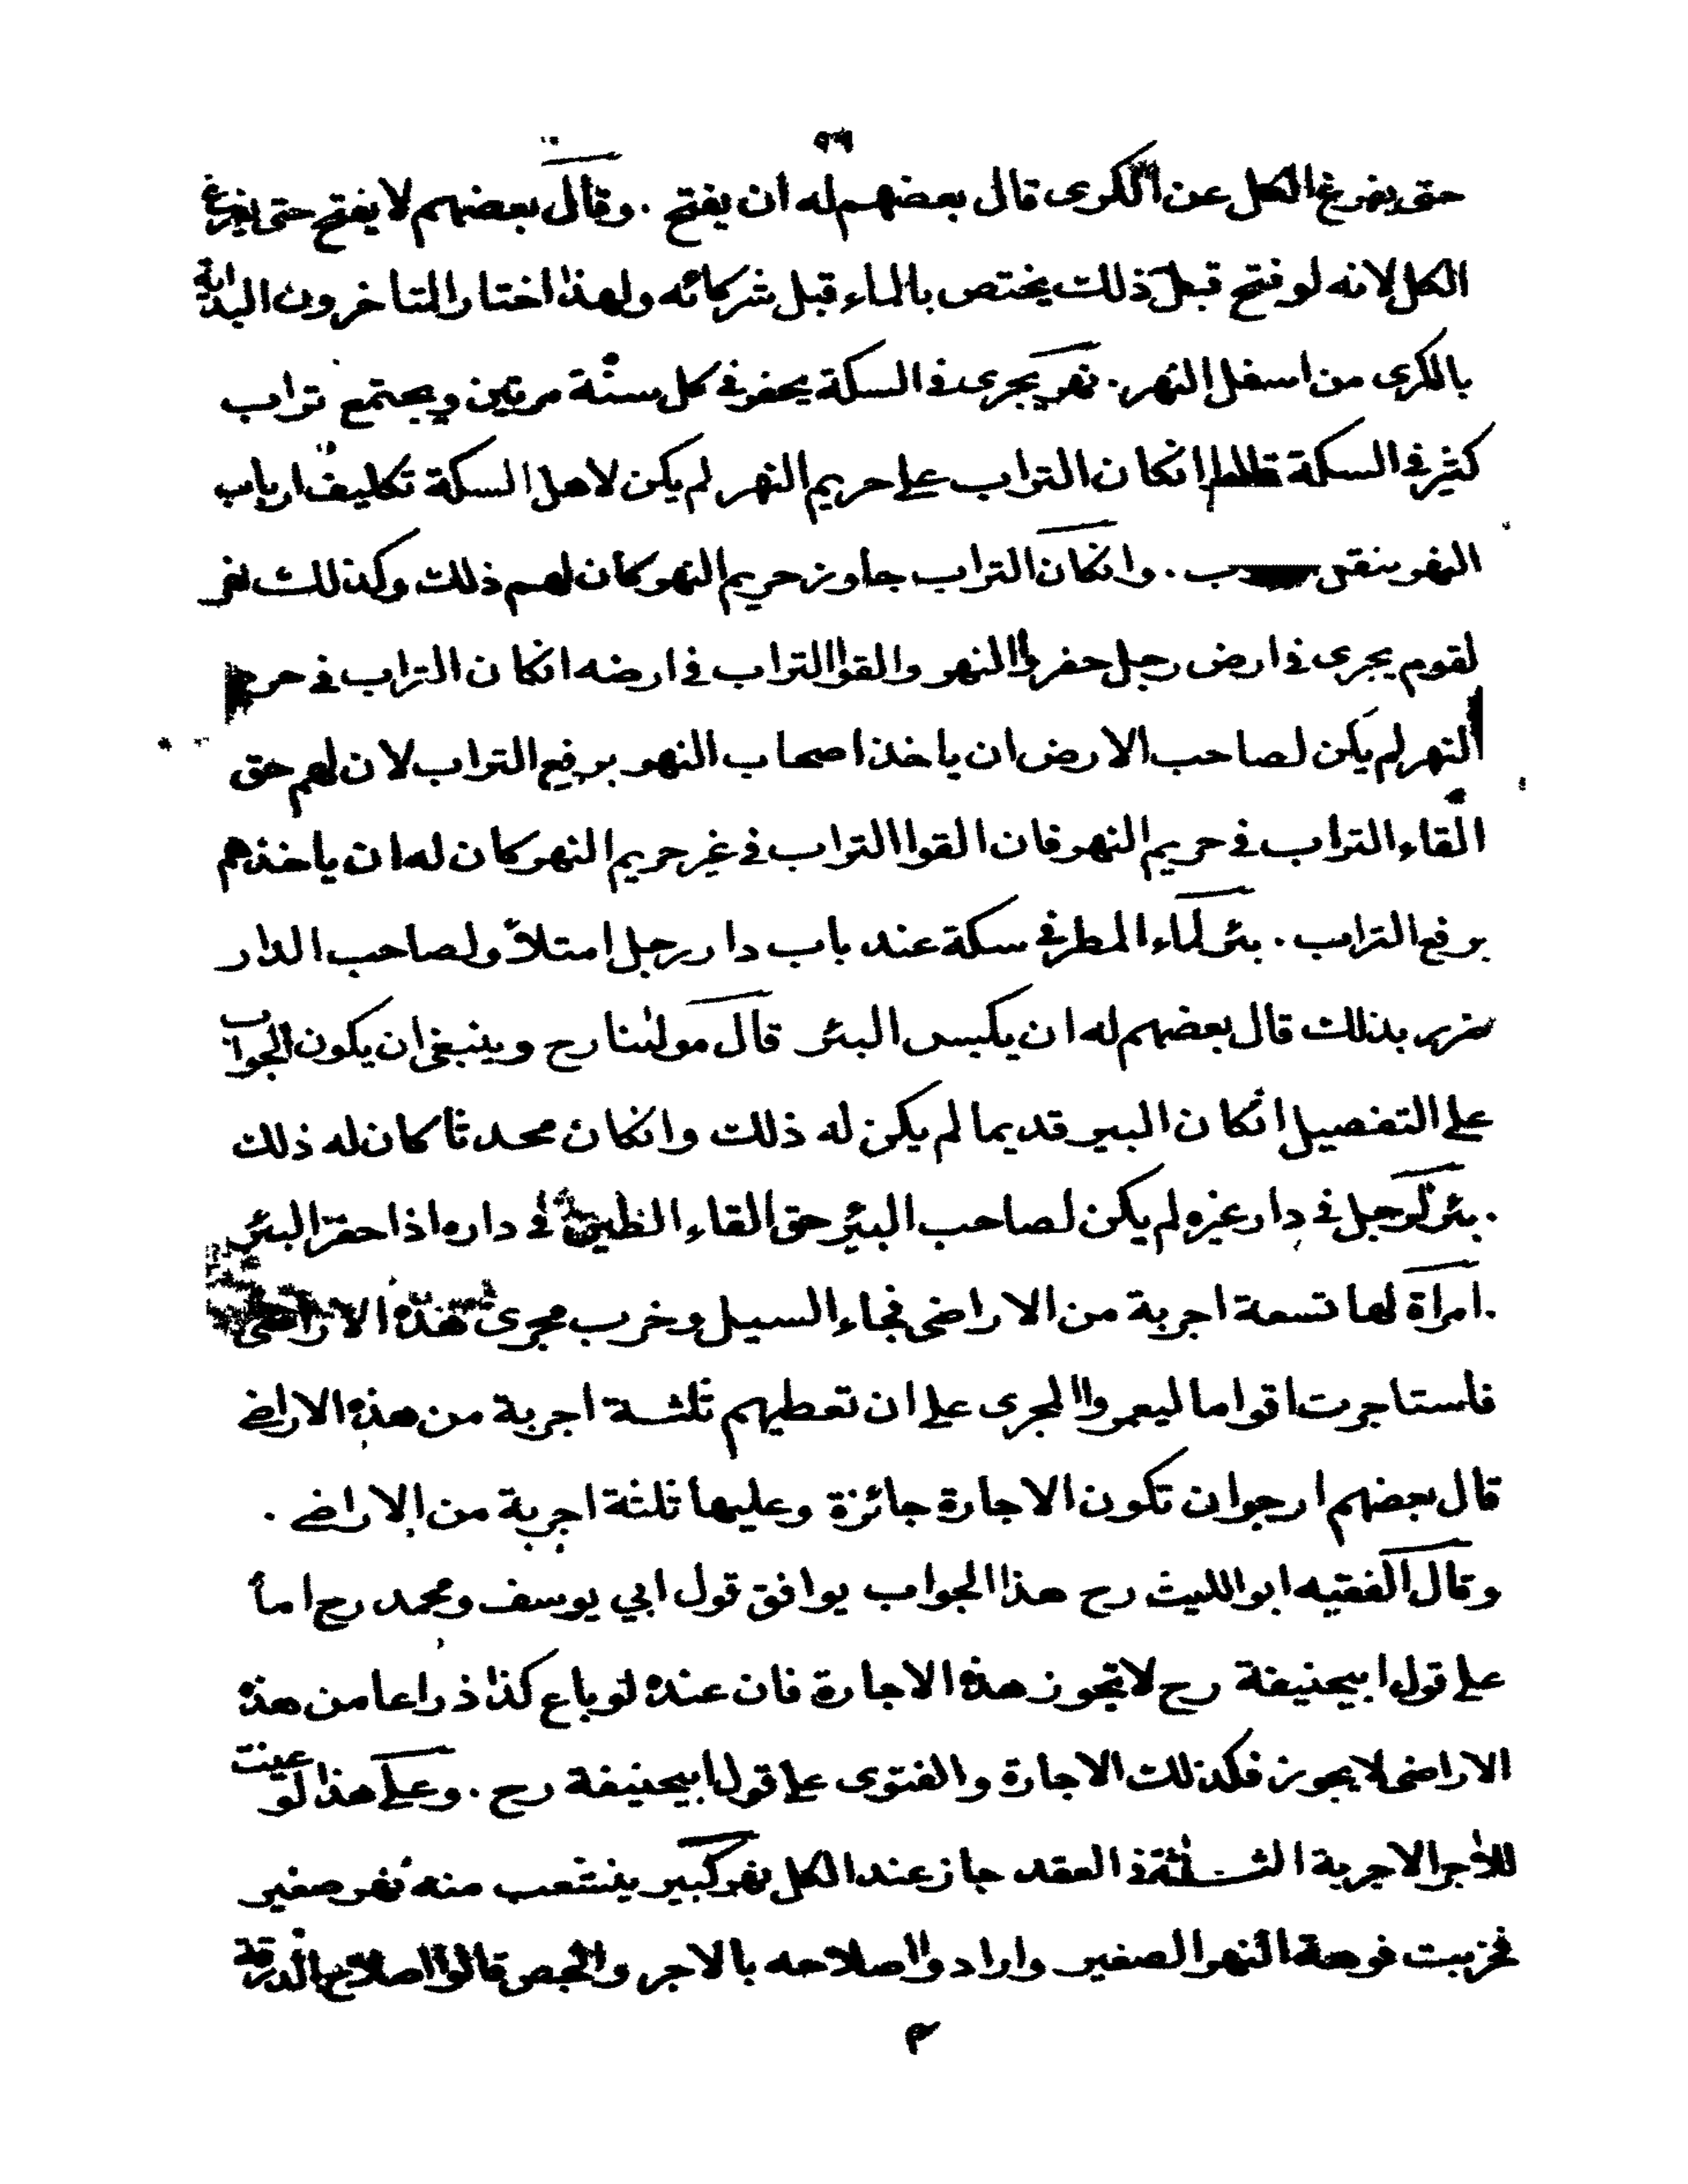 ٩٦
حتى يفرغ الكل عن الكرى قال بعضهم له ان يفتح . وقال بعضهم لا يفتح حتى يفرغ
الكل لانه لو فتح قبل ذلك يختص بالماء قبل شركائه ولهذا اختار المتاخرون البداية
بالكرى من اسفل النهر . نهر يجرى فى السكة يحفر فى كل سنة مرتين ويجتمع تراب
كثير فى السكة انكان التراب على حريم النهر لم يكن لاهل السكة تكليف ارباب
النهر . وانكان التراب جاوز حريم النهر كان لهم ذلك وكذلك نهر
لقوم يجرى فى ارض رجل حفروا النهر والقوا التراب فى ارضه انكان التراب فى حريم
النهر لم يكن لصاحب الارض ان ياخذ اصحاب النهر برفع التراب لان لهم حق
القاء التراب فى حريم النهر فان القوا التراب فى غير حريم النهر كان له ان ياخذهم
برفع التراب . بئر لماء المطر فى سكة عند باب دار رجل امتلأ ولصاحب الدار
ضرر بذلك قال بعضهم له ان يكبس البئر قال مولىنا رح وينبغى ان يكون الجواب
على التفصيل انكان البير قديما لم يكن له ذلك وانكان محدثا كان له ذلك
. بئر لرجل فى دار غيره لم يكن لصاحب البئر حق القاء الطين فى داره اذا حفر البئر
. امراة لها تسعة اجربة من الاراضى فجاء السيل وخرب مجرى هذه الاراضى
فاستاجرت اقواما ليعمروا المجرى على ان تعطيهم ثلثة اجربة من هذه الاراضى
قال بعضهم ارجوا ان تكون الاجارة جائزة وعليها ثلثة اجربة من الاراضى .
وقال الفقيه ابو الليث رح هذا الجواب يوافق قول ابي يوسف ومحمد رح اما
على قول ابيحنيفة رح لا تجوز هذه الاجارة فان عنده لو باع كذا ذراعا من هذه
الاراضى لا يجوز فكذلك الاجارة والفتوى على قول ابيحنيفة رح . وعلى هذا لو عينت
للاجر الاجربة الثلثة فى العقد جاز عند الكل نهر كبير ينشعب منه نهر صغير
فخربت فوهة النهر الصغير وارادوا اصلاحه بالاجر والجص قالوا اصلاح
م